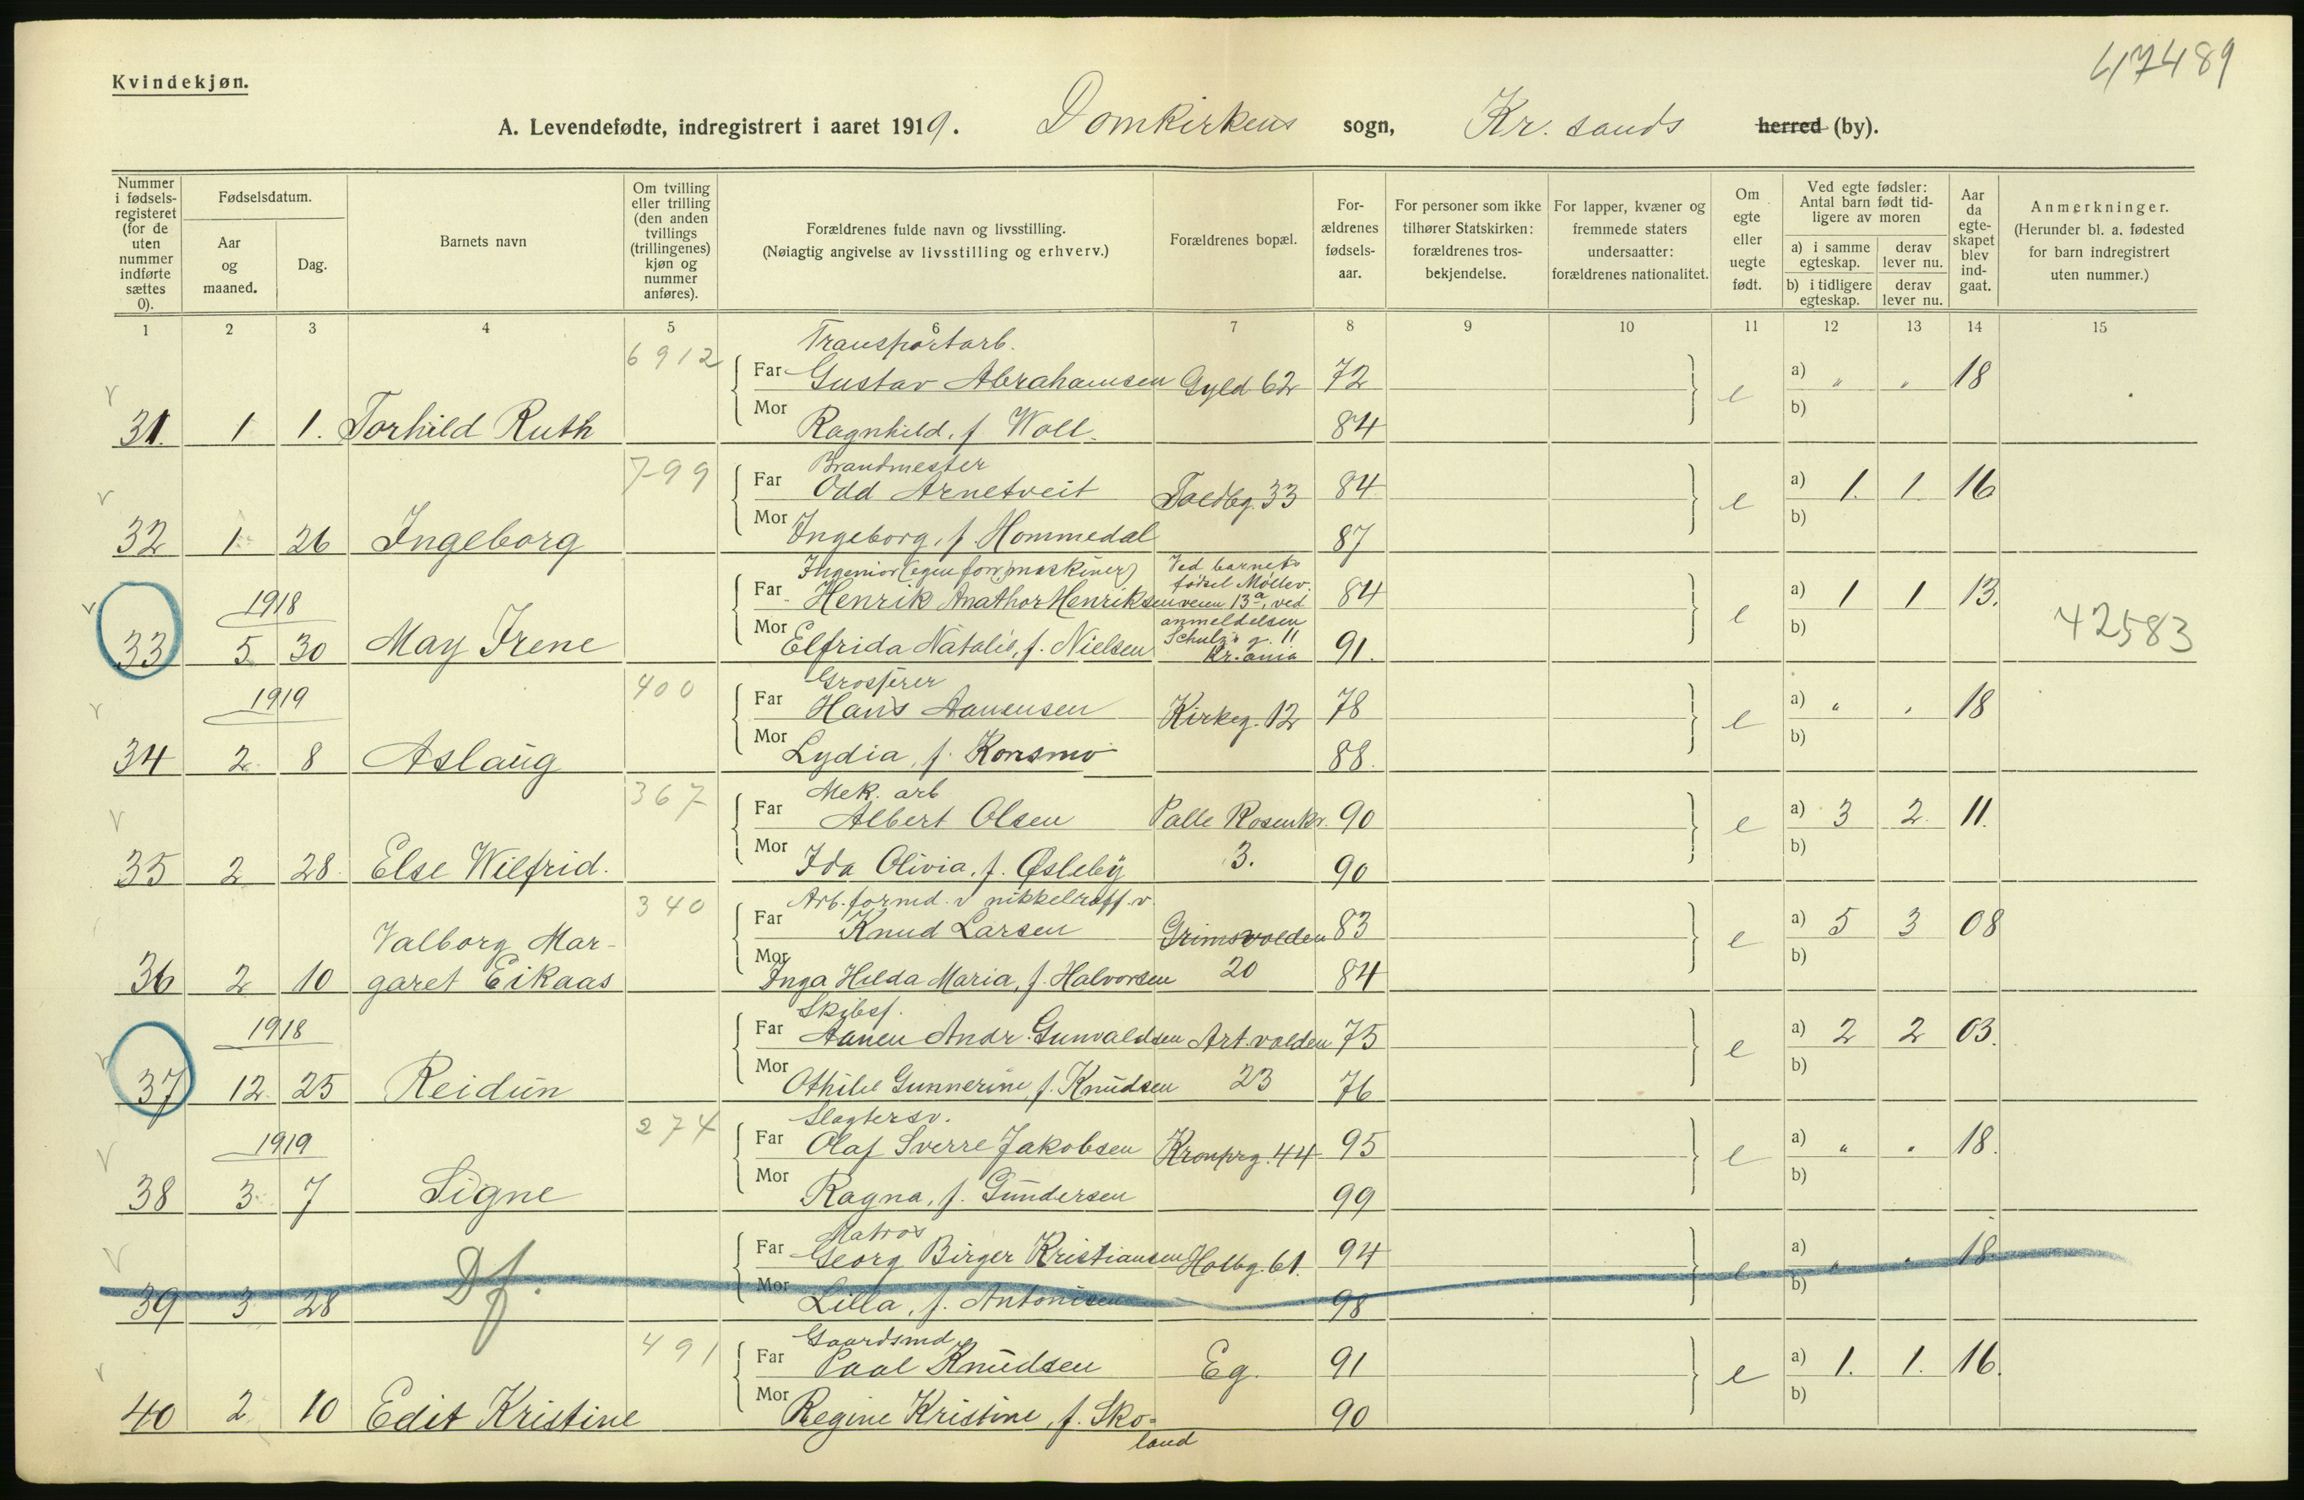 47489
Kvindekjøn.
A. Levendefødte, indregistrert i aaret 1919. Domkirkens sogn, Kr. sands herred (by).
Nummer i fødselsregisteret (for de uten nummer indførte sættes 0).
Fødselsdatum.
Aar og maaned.
Dag.
Barnets navn
Om tvilling eller trilling (den anden tvillings (trillingenes) kjøn og nummer anføres).
Forældrenes fulde navn og livsstilling.
(Nøiagtig angivelse av livsstilling og erhverv.)
Forældrenes bopæl.
Forældrenes fødselsaar.
For personer som ikke tilhører Statskirken: forældrenes trosbekjendelse.
For lapper, kvæner og fremmede staters undersaatter: forældrenes nationalitet.
Om egte eller uegte født.
Ved egte fødsler: Antal barn født tidligere av moren
a) i samme egteskap.
derav lever nu.
b) i tidligere egteskap.
derav lever nu.
Aar da egteskapet blev indgaat.
Anmerkninger.
(Herunder bl. a. fødested for barn indregistrert uten nummer.)
1 2 3 4 5 6 7 8 9 10 11 12 13 14 15
6912 Transportarb.
Far Gustav Abrahamsen Gyld 62 72 e a) " " 18
Mor b)
31. 1 1. Torhild Ruth Ragnhild, f. Woll. 84
799 Brandmester
Far Odd Arnetveit Toldbg. 33 84 e a) 1. 1. 16
Mor b)
32 1 26 Ingeborg Ingeborg, f. Hommedal 87
Ingeniør (egen forr. maskiner) Ved barnets
fødsel Møllev.
1918 Far Henrik Anathor Henriksen veien 13a, ved 84 e a) 1 1 13.
anmeldelsen
33 5 30 May Irene Mor Elfrida Natalie, f. Nielsen Schulz's g. 11 91. b) 42583
Kr.ania
400 Grosserer
1919 Far Hans Aanensen Kirkeg. 12 78 e a) " " 18
34 2 8 Aslaug Mor Lydia, f. Konsmo 88. b)
367 Mek. arb
Far Albert Olsen Palle Rosenkr. 90 e a) 3 2 11.
35 2 28. Else Wilfrid. Mor Ida Olivia, f. Øsleby 3. 90 b)
340 Arb.formd. v nikkelraff.v.
Valborg Mar- Far Knud Larsen Grimsvolden 83 e a) 5 3 08
36 2 10 garet Eikaas Mor Inga Hilda Maria, f. Halvorsen 20 84 b)
Skibsf.
1918 Far Aanen Andr. Gunvaldsen Art.volden 75 e a) 2 2 03.
37 12 25 Reidun Mor Othilie Gunnerine, f. Knudsen 23 76 b)
274 Slagtersv.
1919 Far Olaf Sverre Jakobsen Kronprg. 44 95 e a) " " 18.
38 3 7 Signe Mor Ragna, f. Gundersen 99 b)
Matros
Far Georg Birger Kristiansen Holbg. 61. 94 e a) " " 18
39 3 28 Df. Mor Lilla, f. Antonisen 98 b)
491 Gaardsmd
Far Paal Knudsen Eg. 91 e a) 1. 1. 16.
40 2 10 Edit Kristine Mor Regine Kristine, f. Sko- 90 b)
land